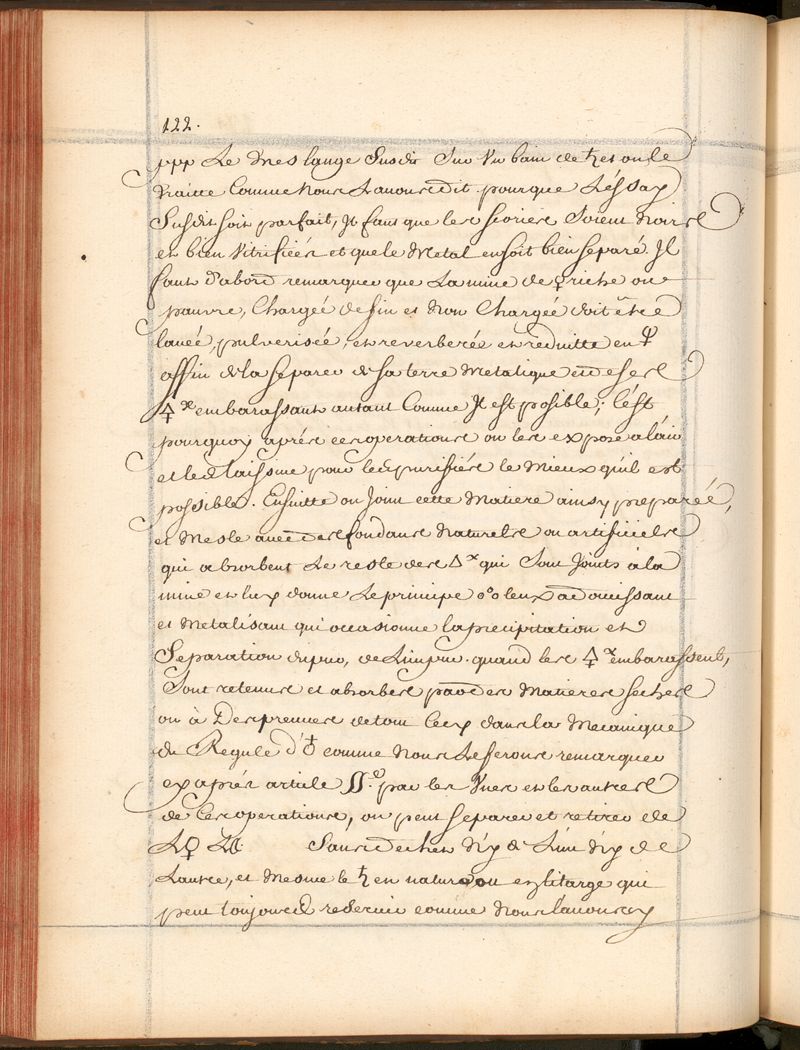 122.
ppp Le Meslange Susdit Sur Vn bain de ♄ et on le
traitte Comme Nous Lauons dit. pour que L'éssay
Susdit soit parfait, Jl faut que les scories soient Noires
et bien Vitrifiées et que le Metal en soit bien separé. Jl
faut d'abord remarquer que La mine de ♀ riche ou
pauure, Chargée de fin et Non Chargée doit être
lauée, pulverisée, et reverberée et reduitte en
affin de la separer de sa terre Metalique et des
🜍 x embarassants autant Comme Jl est posible; C'ést
pourquoy aprés ces operations on les expose a l'air
et les laissine pour les purifiér le Mieux qu'il est
possible. Ensuitte on Joint cette Matiere ainsy preparéé,
et Meslé auec des fondans Naturels ou artificiels
qui absorbent Le reste des 🜂 x qui Sont Joints à la
mine et luy donne Le principe oleux adoucissant
et Metalisant qui occasionne la precipitation et
Separation du pur, de L'impur. quand les 🜍 x embarassent,
Sont retenus et absorbés par des Matieres seches
on à Des preuues de tout Cecy dans la Mecanique
du Regule d'♁ comme Nous Le ferons remarquer
cy aprés article par les Vnes et les autres
de Ces operations, on peut separer et retirer de
La ♀ Sans dechet Ny de L'un Ny de
L'autre, et Mesme le ♄ en nature ou en litarge qui
peut toujours reservir comme Nous l'auons cy